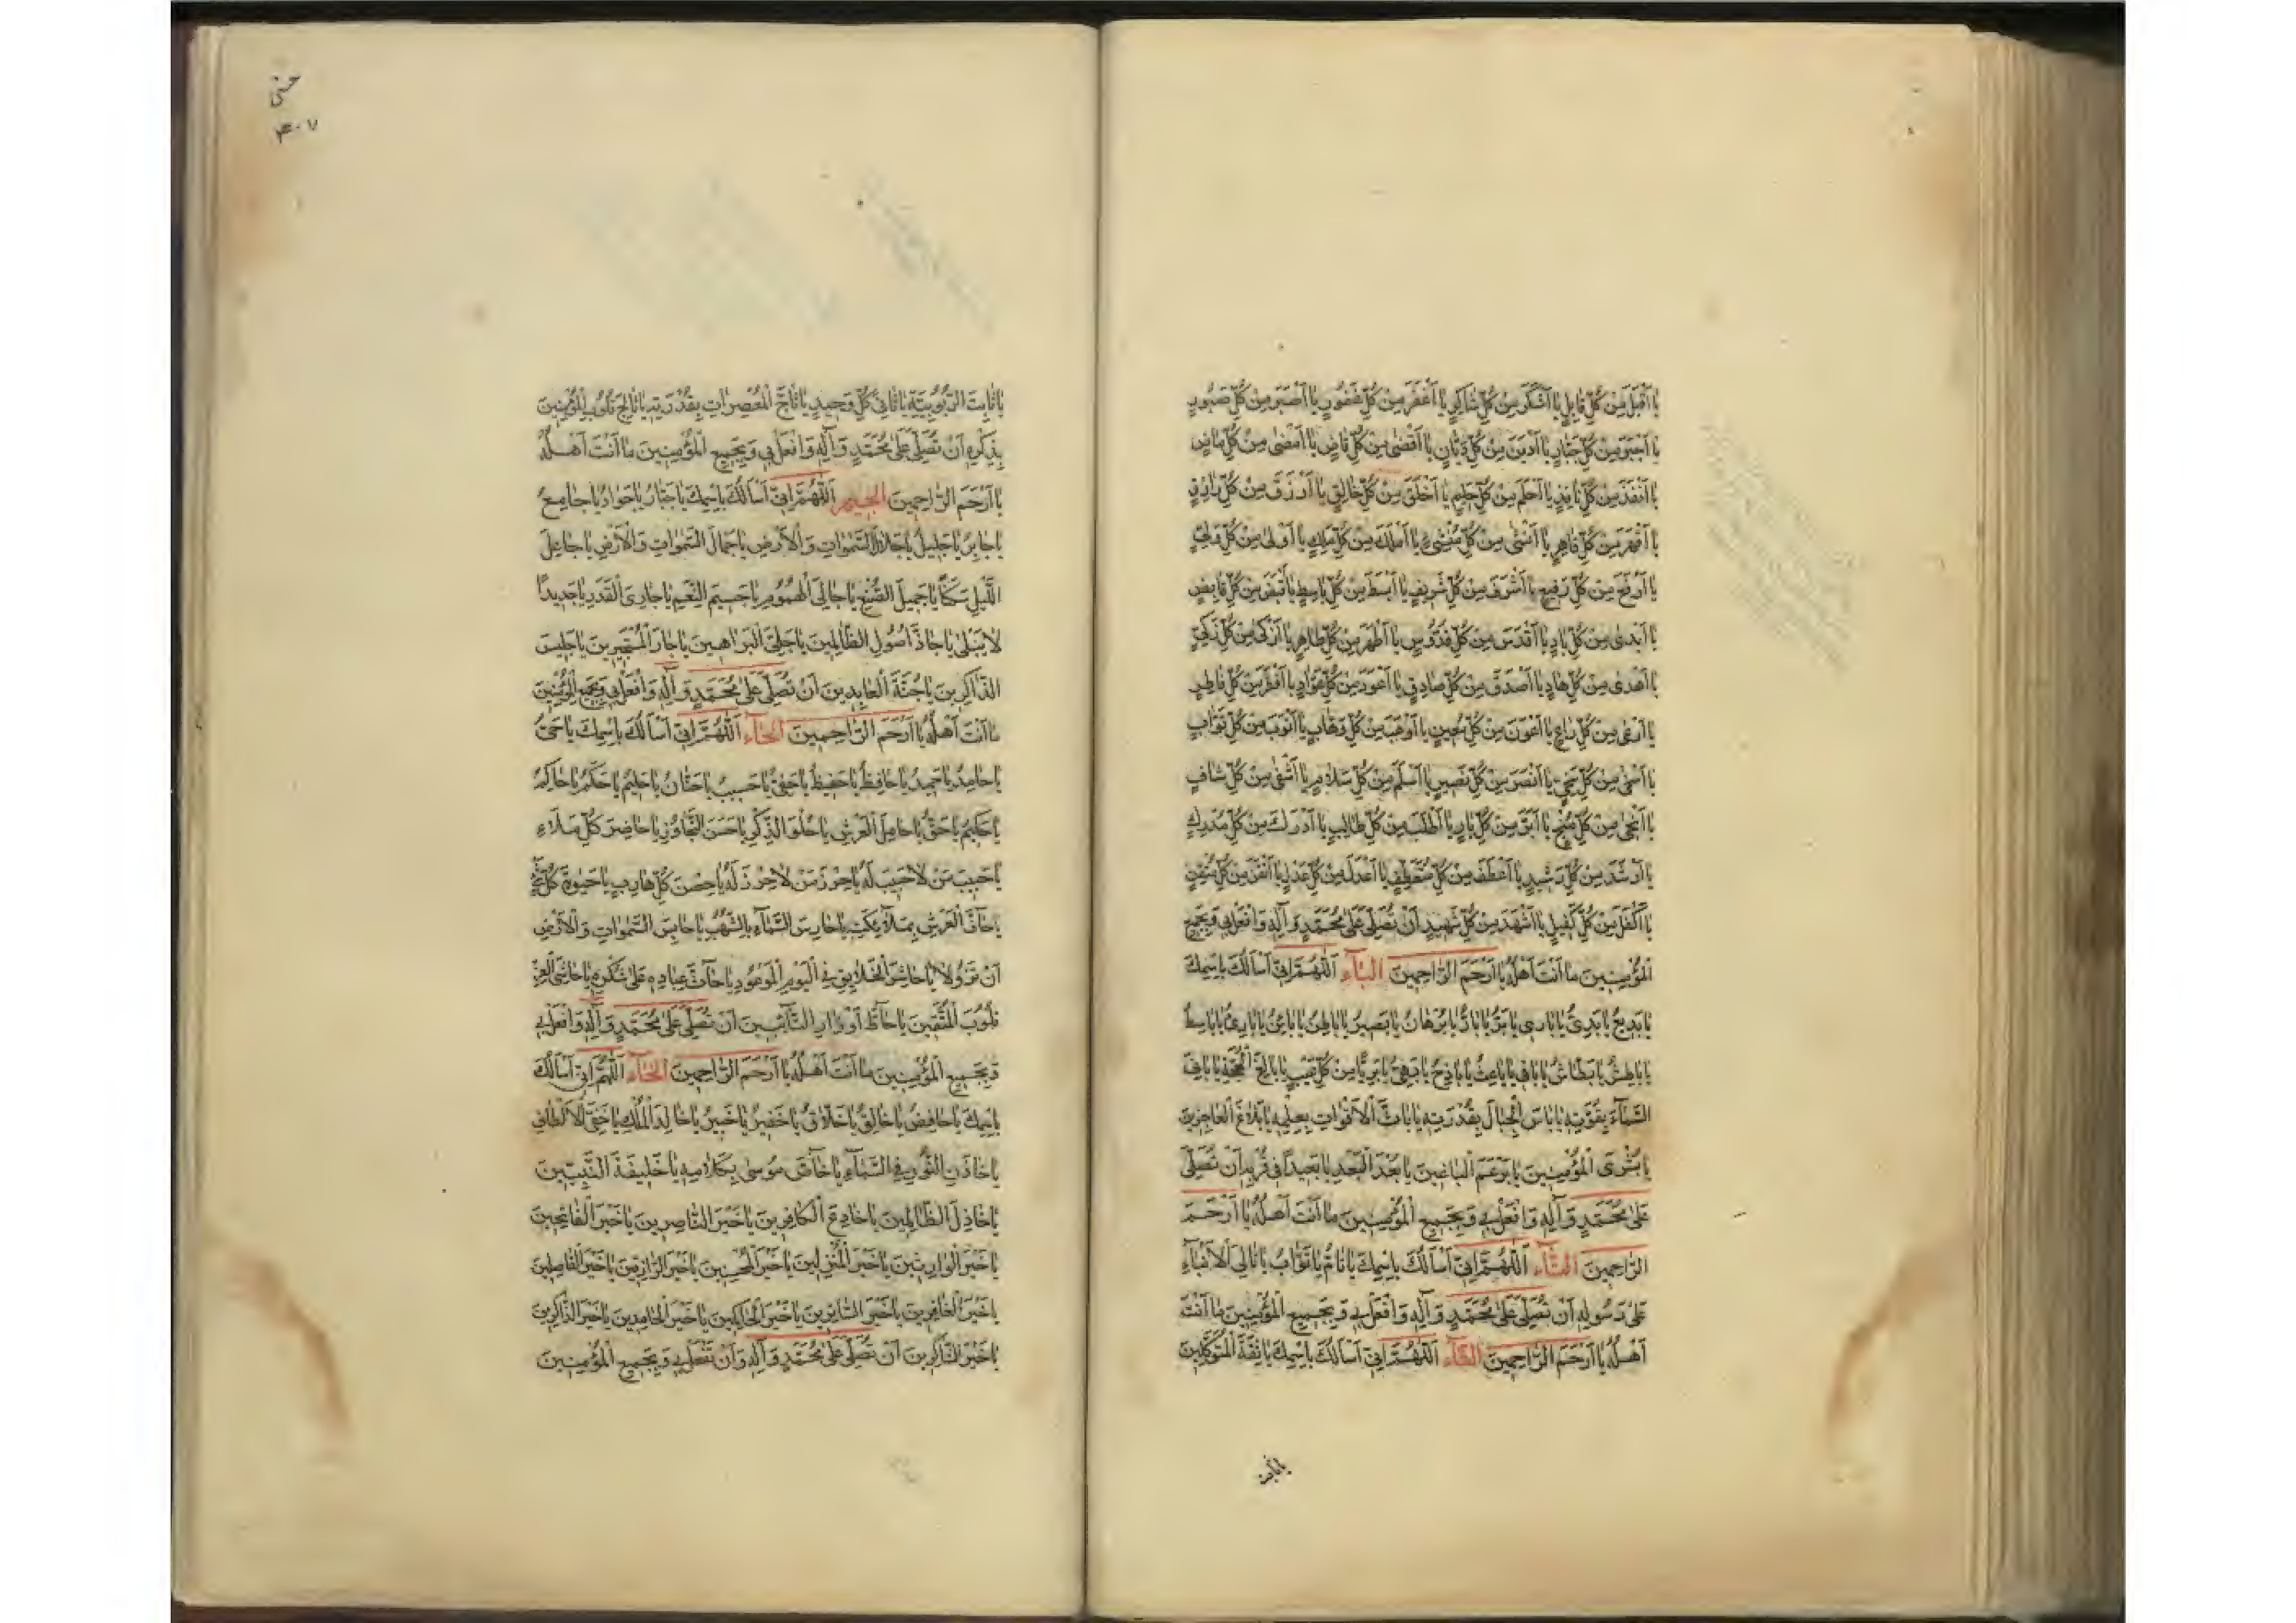 يا اَقْبَلَ مِنْ كُلِّ قابِلٍ يا اَشْكَرَ مِنْ كُلِّ شاكِرٍ يا اَغْفَرَ مِنْ كُلِّ غَفُورٍ يا اَصْبَرَ مِنْ كُلِّ صَبُورٍ
يا اَجْبَرَ مِنْ كُلِّ جَبّارٍ يا اَدْيَنَ مِنْ كُلِّ دَيّانٍ يا اَقْضىٰ مِنْ كُلِّ قاضٍ يا اَمْضىٰ مِنْ كُلِّ ماضٍ
يا اَنْفَذَ مِنْ كُلِّ نافِذٍ يا اَحْلَمَ مِنْ كُلِّ حَليمٍ يا اَخْلَقَ مِنْ كُلِّ خالِقٍ يا اَرْزَقَ مِنْ كُلِّ رازِقٍ
يا اَقْهَرَ مِنْ كُلِّ قاهِرٍ يا اَنْشىٰ مِنْ كُلِّ مُنْشِئٍ يا اَمْلَكَ مِنْ كُلِّ مَلِكٍ يا اَوْلىٰ مِنْ كُلِّ وَلِيٍّ
يا اَرْفَعَ مِنْ كُلِّ رَفيعٍ يا اَشْرَفَ مِنْ كُلِّ شَريفٍ يا اَبْسَطَ مِنْ كُلِّ باسِطٍ يا اَقْبَضَ مِنْ كُلِّ قابِضٍ
يا اَبْدىٰ مِنْ كُلِّ بادٍ يا اَقْدَسَ مِنْ كُلِّ قُدُّوسٍ يا اَطْهَرَ مِنْ كُلِّ طاهِرٍ يا اَزْكىٰ مِنْ كُلِّ زَكِيٍّ
يا اَهْدىٰ مِنْ كُلِّ هادٍ يا اَصْدَقَ مِنْ كُلِّ صادِقٍ يا اَعْوَدَ مِنْ كُلِّ عَوّادٍ يا اَفْطَرَ مِنْ كُلِّ فاطِرٍ
يا اَرْعىٰ مِنْ كُلِّ راعٍ يا اَعْوَنَ مِنْ كُلِّ مُعينٍ يا اَوْهَبَ مِنْ كُلِّ وَهّابٍ يا اَتْوَبَ مِنْ كُلِّ تَوّابٍ
يا اَسْخىٰ مِنْ كُلِّ سَخِيٍّ يا اَنْصَرَ مِنْ كُلِّ نَصيرٍ يا اَسْلَمَ مِنْ كُلِّ سَلامٍ يا اَشْفىٰ مِنْ كُلِّ شافٍ
يا اَنْجىٰ مِنْ كُلِّ مُنْجٍ يا اَبَرَّ مِنْ كُلِّ بارٍّ يا اَطْلَبَ مِنْ كُلِّ طالِبٍ يا اَدْرَكَ مِنْ كُلِّ مُدْرِكٍ
يا اَرْشَدَ مِنْ كُلِّ رَشيدٍ يا اَعْطَفَ مِنْ كُلِّ مُتَعَطِّفٍ يا اَعْدَلَ مِنْ كُلِّ عَدْلٍ يا اَتْقَنَ مِنْ كُلِّ مُتْقِنٍ
يا اَكْفَلَ مِنْ كُلِّ كَفيلٍ يا اَشْهَدَ مِنْ كُلِّ شَهيدٍ اَنْ تُصَلِّيَ عَلىٰ مُحَمَّدٍ وَ آلِهِ وَ افْعَلْ بي وَ بِجَميعِ
الْمُؤْمِنينَ ما اَنْتَ اَهْلُهُ يا اَرْحَمَ الرّاحِمينَ الباء اَللّهُمَّ اِنّي اَسْاَلُكَ بِاسْمِكَ
يا بَديعُ يا بَدِيُّ يا بارِئُ يا بَرُّ يا بارُّ يا بُرْهانُ يا بَصيرُ يا باطِنُ يا بائِنُ يا بارِعُ يا باسِطُ
يا باطِشُ يا بَطّاشُ يا باقي يا باعِثُ يا باذِخُ يا بَهِيُّ يا بَرِيًّا مِنْ كُلِّ عَيْبٍ يا بالِغَ الْحُجَّةِ يا بانِيَ
السَّماءِ بِقُوَّتِهِ يا باسَّ الْجِبالِ بِقُدْرَتِهِ يا باثَّ الْاَقْواتِ بِعِلْمِهِ يا بَلاغَ الْعاجِزينَ
يا بُشْرَى الْمُؤْمِنينَ يا بَرْغَمَ الْباغينَ يا بُعْدَ الْبُعْدِ يا بَعيدًا في قُرْبِهِ اَنْ تُصَلِّيَ
عَلىٰ مُحَمَّدٍ وَ آلِهِ وَ افْعَلْ بي وَ بِجَميعِ الْمُؤْمِنينَ ما اَنْتَ اَهْلُهُ يا اَرْحَمَ
الرّاحِمينَ التاء اَللّهُمَّ اِنّي اَسْاَلُكَ بِاسْمِكَ يا تامُّ يا تَوّابُ يا تالِيَ الْاَنْباءِ
عَلىٰ رَسُولِهِ اَنْ تُصَلِّيَ عَلىٰ مُحَمَّدٍ وَ آلِهِ وَ افْعَلْ بي وَ بِجَميعِ الْمُؤْمِنينَ ما اَنْتَ
اَهْلُهُ يا اَرْحَمَ الرّاحِمينَ الثاء اَللّهُمَّ اِنّي اَسْاَلُكَ بِاسْمِكَ يا ثِقَةَ الْمُتَوَكِّلينَ
يا ثابت
٤٠٧
يا ثابِتَ الرُّبُوبِيَّةِ يا ثانِيَ كُلِّ وَحيدٍ يا ثاجَّ الْمُعْصِراتِ بِقُدْرَتِهِ يا ثالِجَ قُلُوبِ الْمُؤْمِنينَ
بِذِكْرِهِ اَنْ تُصَلِّيَ عَلىٰ مُحَمَّدٍ وَ آلِهِ وَ افْعَلْ بي وَ بِجَميعِ الْمُؤْمِنينَ ما اَنْتَ اَهْلُهُ
يا اَرْحَمَ الرّاحِمينَ الجيم اَللّهُمَّ اِنّي اَسْاَلُكَ بِاسْمِكَ يا جَبّارُ يا جَوادُ يا جامِعُ
يا جابِرُ يا جَليلُ يا جَلالَ السَّمٰواتِ وَ الْاَرْضِ يا جَمالَ السَّمٰواتِ وَ الْاَرْضِ يا جاعِلَ
اللَّيْلِ سَكَنًا يا جَميلَ الصُّنْعِ يا جالِيَ الْهُمُومِ يا جَسيمَ النِّعَمِ يا جارِيَ الْقَدَرِ يا جَديدًا
لا يَبْلىٰ يا جاذَّ اُصُولِ الظّالِمينَ يا جَلِيَّ الْبَراهينِ يا جارَ الْمُسْتَجيرينَ يا جَليسَ
الذّاكِرينَ يا جُنَّةَ الْعابِدينَ اَنْ تُصَلِّيَ عَلىٰ مُحَمَّدٍ وَ آلِهِ وَ افْعَلْ بي وَ بِجَميعِ الْمُؤْمِنينَ
ما اَنْتَ اَهْلُهُ يا اَرْحَمَ الرّاحِمينَ الحاء اَللّهُمَّ اِنّي اَسْاَلُكَ بِاسْمِكَ يا حَيُّ
يا حامِدُ يا حَميدُ يا حافِظُ يا حَفيظُ يا حَفِيُّ يا حَسيبُ يا حَنّانُ يا حَليمُ يا حَكَمُ يا حاكِمُ
يا حَكيمُ يا حَقُّ يا حامِلَ الْعَرْشِ يا حُلْوَ الذِّكْرِ يا حَسَنَ التَّجاوُزِ يا حاضِرَ كُلِّ مَلَاءٍ
يا حَبيبَ مَنْ لا حَبيبَ لَهُ يا حِرْزَ مَنْ لا حِرْزَ لَهُ يا حِصْنَ كُلِّ هارِبٍ يا حَيٰوةَ كُلِّ شَيْءٍ
يا حافَّ الْعَرْشِ بِمَلائِكَتِهِ يا حارِسَ السَّماءِ بِالشُّهُبِ يا حابِسَ السَّمٰواتِ وَ الْاَرْضِ
اَنْ تَزُولا يا حاشِرَ الْخَلايِقِ فِي الْيَوْمِ الْمَوْعُودِ يا حاثَّ عِبادِهِ عَلىٰ شُكْرِهِ يا حاشِيَ الْعِزِّ
قُلُوبَ الْمُتَّقينَ يا حاطَّ اَوْزارِ التّائِبينَ اَنْ تُصَلِّيَ عَلىٰ مُحَمَّدٍ وَ آلِهِ وَ افْعَلْ بي
وَ بِجَميعِ الْمُؤْمِنينَ ما اَنْتَ اَهْلُهُ يا اَرْحَمَ الرّاحِمينَ الخاء اَللّهُمَّ اِنّي اَسْاَلُكَ
بِاسْمِكَ يا خافِضُ يا خالِقُ يا خَلّاقُ يا خَفيرُ يا خَبيرُ يا خالِدَ الْمُلْكِ يا خَفِيَّ الْاَلْطافِ
يا خازِنَ النُّورِ فِي السَّماءِ يا خاصَّ مُوسىٰ بِكَلامِهِ يا خَليفَةَ النَّبِيّينَ
يا خاذِلَ الظّالِمينَ يا خادِعَ الْكافِرينَ يا خَيْرَ النّاصِرينَ يا خَيْرَ الْفاتِحينَ
يا خَيْرَ الْوارِثينَ يا خَيْرَ الْمُنْزِلينَ يا خَيْرَ الْمُحْسِنينَ يا خَيْرَ الرّازِقينَ يا خَيْرَ الْفاصِلينَ
يا خَيْرَ الْغافِرينَ يا خَيْرَ السّاتِرينَ يا خَيْرَ الْحاكِمينَ يا خَيْرَ الْحامِدينَ يا خَيْرَ الذّاكِرينَ
يا خَيْرَ الشّاكِرينَ اَنْ تُصَلِّيَ عَلىٰ مُحَمَّدٍ وَ آلِهِ وَ اَنْ تَفْعَلَ بي وَ بِجَميعِ الْمُؤْمِنينَ